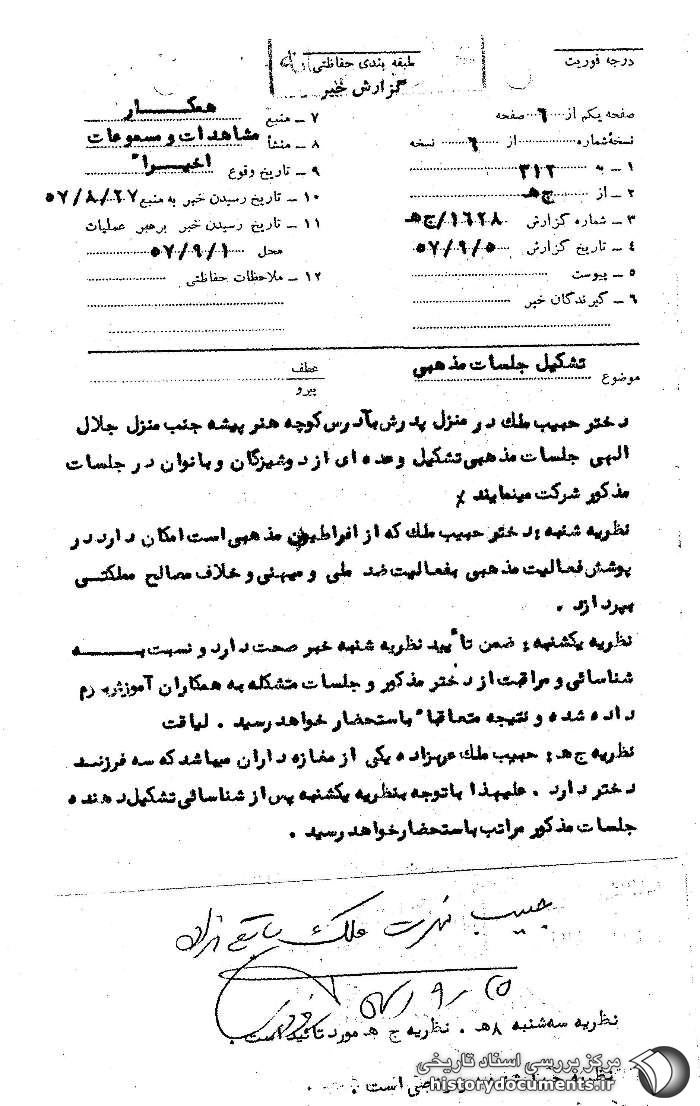 درجه فوریت
طبقه بندی حفاظتی
گزارش خبر
صفحه یکم از ۶ صفحه
نسخه شماره از ۶ نسخه
۱ ـ به ۳۱۲
۲ ـ از ج ه‍
۳ ـ شماره گزارش ۱۶۲۸/ج ه‍
۴ ـ تاریخ گزارش ۵۷/۹/۵
۵ ـ پیوست
۶ ـ گیرندگان خبر
۷ ـ منبع همکار
۸ ـ منشأ مشاهدات و مسموعات
۹ ـ تاریخ وقوع اخیراً
۱۰ ـ تاریخ رسیدن خبر به منبع ۵۷/۸/۲۷
۱۱ ـ تاریخ رسیدن خبر برهبر عملیات
محل ۵۷/۹/۱
۱۲ ـ ملاحظات حفاظتی
موضوع تشکیل جلسات مذهبی
عطف
پیرو
دختر حبیب ملك در منزل پدرش بآدرس کوچه هنر پیشه جنب منزل جلال
الهی جلسات مذهبی تشکیل وعده ای از دوشیزگان و بانوان در جلسات
مذکور شرکت مینمایند
نظریه شنبه : دختر حبیب ملك که از افراطیون مذهبی است امکان دارد در
پوشش فعالیت مذهبی بفعالیت ضد ملی و میهنی و خلاف مصالح مملکتی
بپردازد .
نظریه یکشنبه : ضمن تأیید نظریه شنبه خبر صحت دارد و نسبت به
شناسائی و مراقبت از دختر مذکور و جلسات متشکله به همکاران آموزش
داده شده و نتیجه متعاقباً باستحضار خواهد رسید . لیاقت
نظریه ج ه‍ : حبیب ملك عربزاده یکی از مغازه داران میباشد که سه فرزند
دختر دارد . علیهذا باتوجه بنظریه یکشنبه پس از شناسائی تشکیل دهنده
جلسات مذکور مراتب باستحضار خواهد رسید .
حبیب ملک
نظریه سه شنبه ۸ه‍ . نظریه ج ه‍ مورد تائید است .
نظریه است .
مرکز بررسی اسناد تاریخی
historydocuments.ir